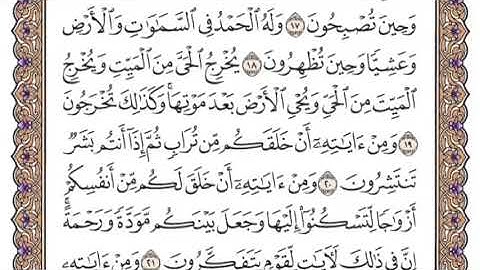 وَحِينَ تُصْبِحُونَ ١٧ وَلَهُ الْحَمْدُ فِي السَّمَٰوَٰتِ وَالْأَرْضِ
وَعَشِيًّا وَحِينَ تُظْهِرُونَ ١٨ يُخْرِجُ الْحَيَّ مِنَ الْمَيِّتِ وَيُخْرِجُ
الْمَيِّتَ مِنَ الْحَيِّ وَيُحْيِ الْأَرْضَ بَعْدَ مَوْتِهَا ۚ وَكَذَٰلِكَ تُخْرَجُونَ
١٩ وَمِنْ ءَايَٰتِهِۦٓ أَنْ خَلَقَكُم مِّن تُرَابٍ ثُمَّ إِذَآ أَنتُم بَشَرٌ
تَنتَشِرُونَ ٢٠ وَمِنْ ءَايَٰتِهِۦٓ أَنْ خَلَقَ لَكُم مِّنْ أَنفُسِكُمْ
أَزْوَٰجًا لِّتَسْكُنُوٓا۟ إِلَيْهَا وَجَعَلَ بَيْنَكُم مَّوَدَّةً وَرَحْمَةً ۚ
إِنَّ فِي ذَٰلِكَ لَءَايَٰتٍ لِّقَوْمٍ يَتَفَكَّرُونَ ٢١ وَمِنْ ءَايَٰتِهِۦ